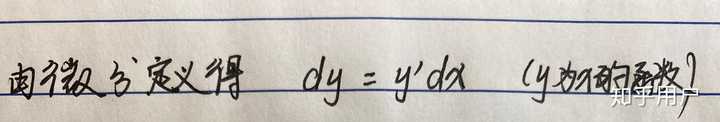 由微分定义得 dy = y'dx (y为x的函数)
知乎用户